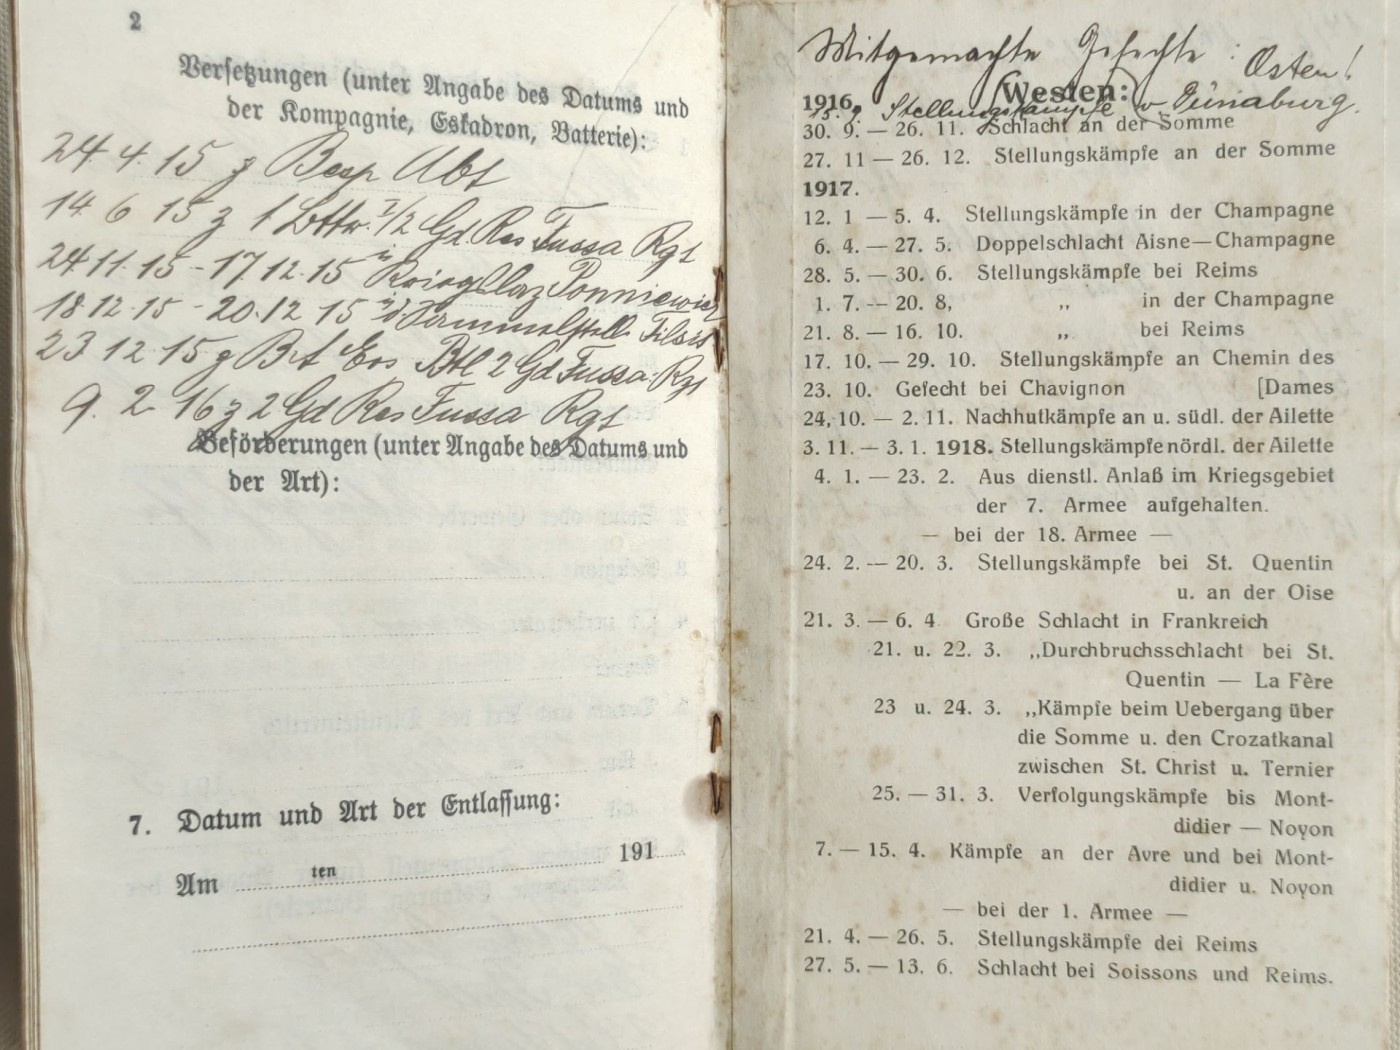 2
Versetzungen (unter Angabe des Datums und
der Kompagnie, Eskadron, Batterie):
24 4. 15 z Besp Abt
14 6 15 z 1 Bttr. I/2 Gd Res Fussa Rgt
24 11. 15 - 17 12. 15 in Krieg Laz Ponniewiez
18 12. 15 - 20. 12 15 Tilsit
23 12. 15 z Bt Ers Btl 2 Gd Fussa Rgt
9. 2. 16 z 2 Gd Res Fussa Rgt
Beförderungen (unter Angabe des Datums und
der Art):
7. Datum und Art der Entlassung:
Am ten 191
Mitgemachte Gefechte: Osten!
Westen:
1916. 15. 9 Stellungskämpfe v Dünaburg.
30. 9. — 26. 11. Schlacht an der Somme
27. 11 — 26. 12. Stellungskämpfe an der Somme
1917.
12. 1 — 5. 4. Stellungskämpfe in der Champagne
6. 4. — 27. 5. Doppelschlacht Aisne—Champagne
28. 5. — 30. 6. Stellungskämpfe bei Reims
1. 7. — 20. 8, „ in der Champagne
21. 8. — 16. 10. „ bei Reims
17. 10. — 29. 10. Stellungskämpfe an Chemin des
23. 10. Gefecht bei Chavignon [Dames
24, 10. — 2. 11. Nachhutkämpfe an u. südl. der Ailette
3. 11. — 3. 1. 1918. Stellungskämpfe nördl. der Ailette
4. 1. — 23. 2. Aus dienstl. Anlaß im Kriegsgebiet
der 7. Armee aufgehalten.
— bei der 18. Armee —
24. 2. — 20. 3. Stellungskämpfe bei St. Quentin
u. an der Oise
21. 3. — 6. 4 Große Schlacht in Frankreich
21. u. 22. 3. „Durchbruchsschlacht bei St.
Quentin — La Fère
23 u. 24. 3. „Kämpfe beim Uebergang über
die Somme u. den Crozatkanal
zwischen St. Christ u. Ternier
25. — 31. 3. Verfolgungskämpfe bis Mont-
didier — Noyon
7. — 15. 4. Kämpfe an der Avre und bei Mont-
didier u. Noyon
— bei der 1. Armee —
21. 4. — 26. 5. Stellungskämpfe dei Reims
27. 5. — 13. 6. Schlacht bei Soissons und Reims.